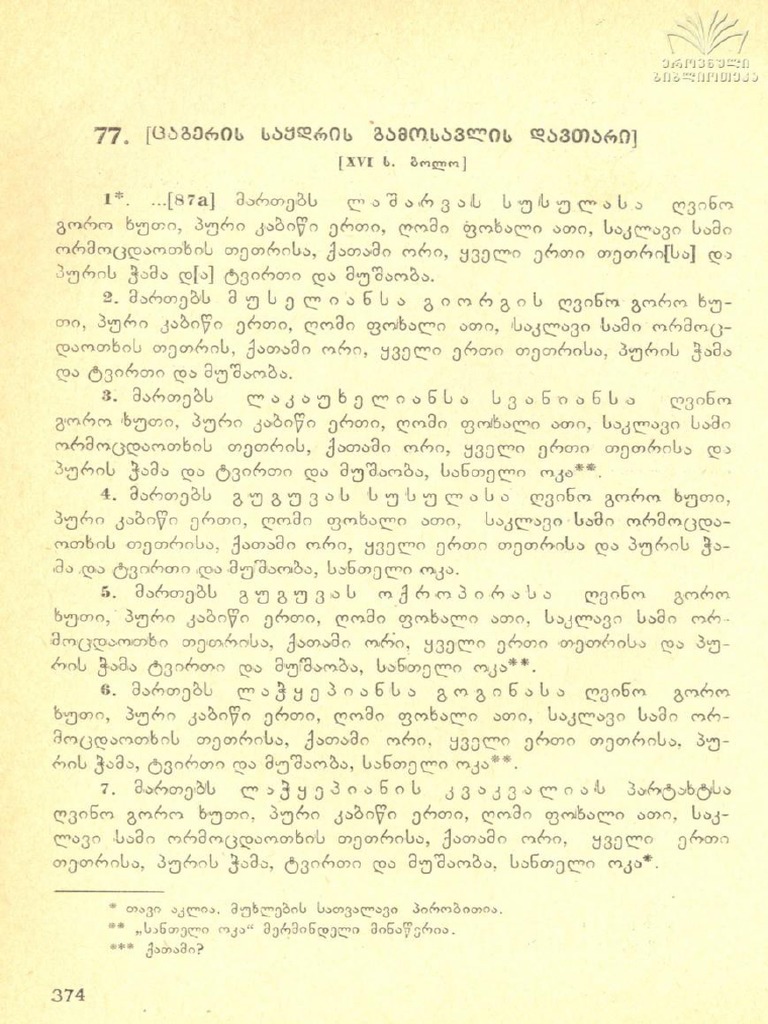 ეროვნული
ბიბლიოთეკა
77. [ცაგერის საყდრის გამოსავლის დავთარი]
[XVI ს. ბოლო]
1*. ...[87a] მართებს ლაშარვას სუსულასა ღვინო
გორო ხუთი, პური კაბიწი ერთი, ღომი ფოხალი ათი, საკლავი სამი
ორმოცდაოთხის თეთრისა, ქათამი ორი, ყველი ერთი თეთრი[სა] და
პურის ჭამა დ[ა] ტვირთი და მუშაობა.
2. მართებს მუსელიანსა გიორგის ღვინო გორო ხუ-
თი, პური კაბიწი ერთი, ღომი ფოხალი ათი, საკლავი სამი ორმოც-
დაოთხის თეთრის, ქათამი ორი, ყველი ერთი თეთრისა, პურის ჭამა
და ტვირთი და მუშაობა.
3. მართებს ლაკაუხელიანსა სვანიანსა ღვინო
გორო ხუთი, პური კაბიწი ერთი, ღომი ფოხალი ათი, საკლავი სამი
ორმოცდაოთხის თეთრის, ქათამი ორი, ყველი ერთი თეთრისა და
პურის ჭამა და ტვირთი და მუშაობა, სანთელი ოკა**.
4. მართებს გუგუვას სუსულასა ღვინო გორო ხუთი,
პური კაბიწი ერთი, ღომი ფოხალი ათი, საკლავი სამი ორმოცდა-
ოთხის თეთრისა, ქათამი ორი, ყველი ერთი თეთრისა და პურის ჭა-
მა და ტვირთი და მუშაობა, სანთელი ოკა.
5. მართებს გუგუვას ოქროპირასა ღვინო გორო
ხუთი, პური კაბიწი ერთი, ღომი ფოხალი ათი, საკლავი სამი ორ-
მოცდაოთხი თეთრისა, ქათამი ორი, ყველი ერთი თეთრისა და პუ-
რის ჭამა ტვირთი და მუშაობა, სანთელი ოკა**.
6. მართებს ლაჭყეპიანსა გოგინასა ღვინო გორო
ხუთი, პური კაბიწი ერთი, ღომი ფოხალი ათი, საკლავი სამი ორ-
მოცდაოთხის თეთრისა, ქათამი ორი, ყველი ერთი თეთრისა, პუ-
რის ჭამა, ტვირთი და მუშაობა, სანთელი ოკა**.
7. მართებს ლაჭყეპიანის კვაკვალიას პარტახტსა
ღვინო გორო ხუთი, პური კაბიწი ერთი, ღომი ფოხალი ათი, საკ-
ლავი სამი ორმოცდაოთხის თეთრისა, ქათამი ორი, ყველი ერთი
თეთრისა, პურის ჭამა, ტვირთი და მუშაობა, სანთელი ოკა*.
* თავი აკლია. მუხლების სათვალავი პირობითია.
** „სანთელი ოკა“ მერმინდელი მინაწერია.
*** ქათამი?
374